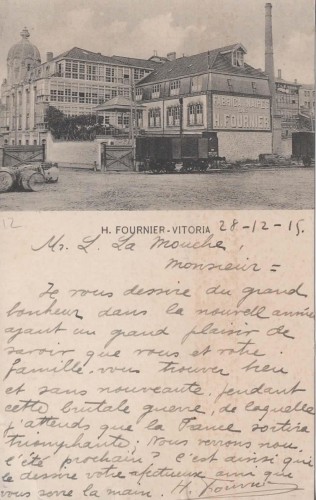 H. FOURNIER
H. FOURNIER - VITORIA 28-12-15.
12
Mr. L. La Mouche,
Monsieur =
Je vous dessire du grand
bonheur dans la nouvell année
ayant un grand plaisir de
savoir que vous et votre
famille, vous trouver bien
et sans nouveauté, pendant
cette brutale guerre, de laquelle
j'attends que la France sortira
triomphante; Nous verrons nou
l'été prochain? c'est ainsi que
le dessire votre afectueux ami que
vous serre la main. H. Fournier